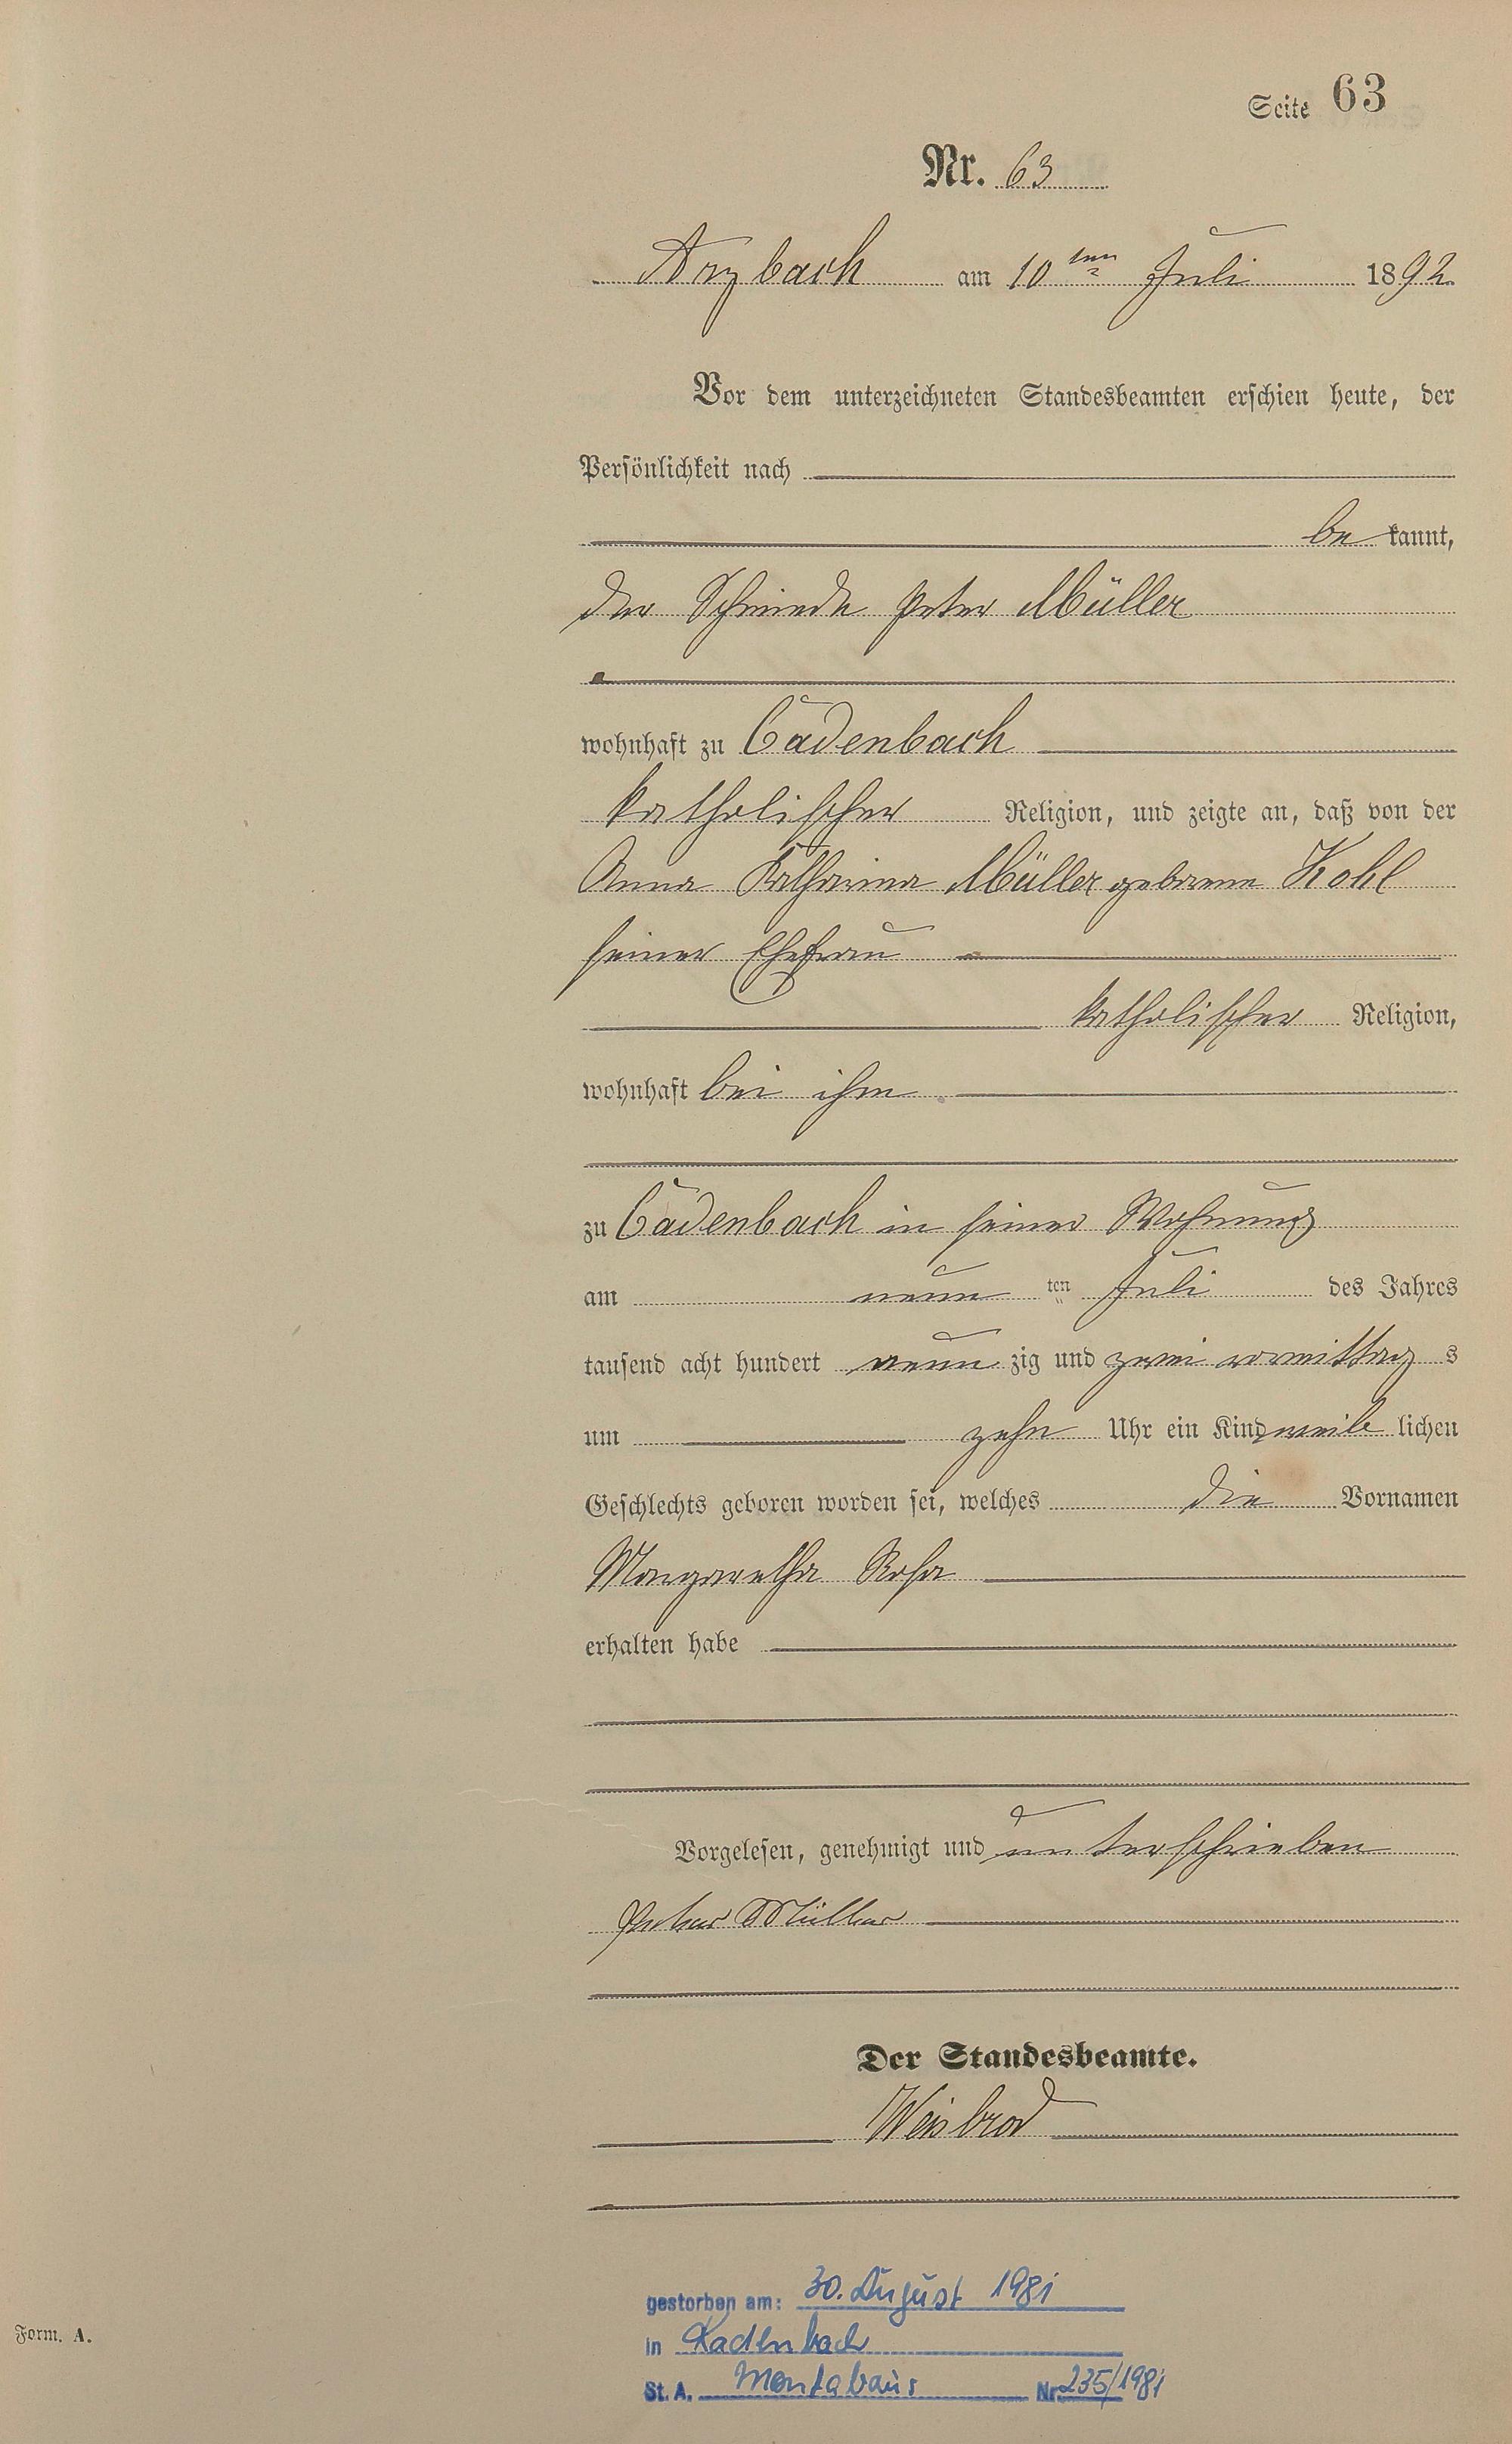 Seite 63
Nr. 63
Arzbach am 10ten Juli 1892.
Vor dem unterzeichneten Standesbeamten erschien heute, der
Persönlichkeit nach
be kannt,
der Schmiede Peter Müller
wohnhaft zu Cadenbach
katholischer Religion, und zeigte an, daß von der
Anna Katharina Müller geborene Kohl
seiner Ehefrau
katholischer Religion,
wohnhaft bei ihm
zu Cadenbach in seiner Wohnung
am neun ten Juli des Jahres
tausend acht hundert neun zig und zwei vormittag s
um zehn Uhr ein Kind weib lichen
Geschlechts geboren worden sei, welches die Vornamen
Margaretha Rosa
erhalten habe
Vorgelesen, genehmigt und unterschrieben
Peter Müller
Der Standesbeamte.
Weisbrod
gestorben am: 30. August 1981
in Kadenbach
St. A. Montabaur Nr. 235/1981
Form. A.